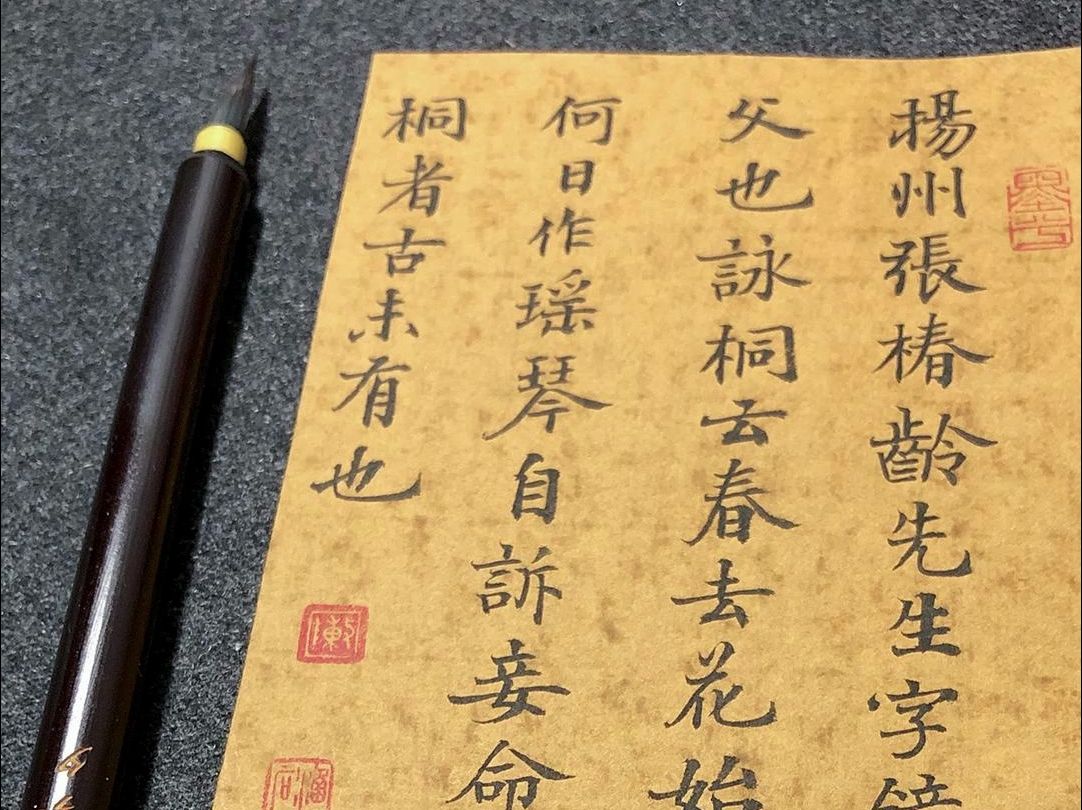 揚州張椿齡先生字
父也詠桐云春去花始
何日作瑶琴自訴妾命
桐者古未有也